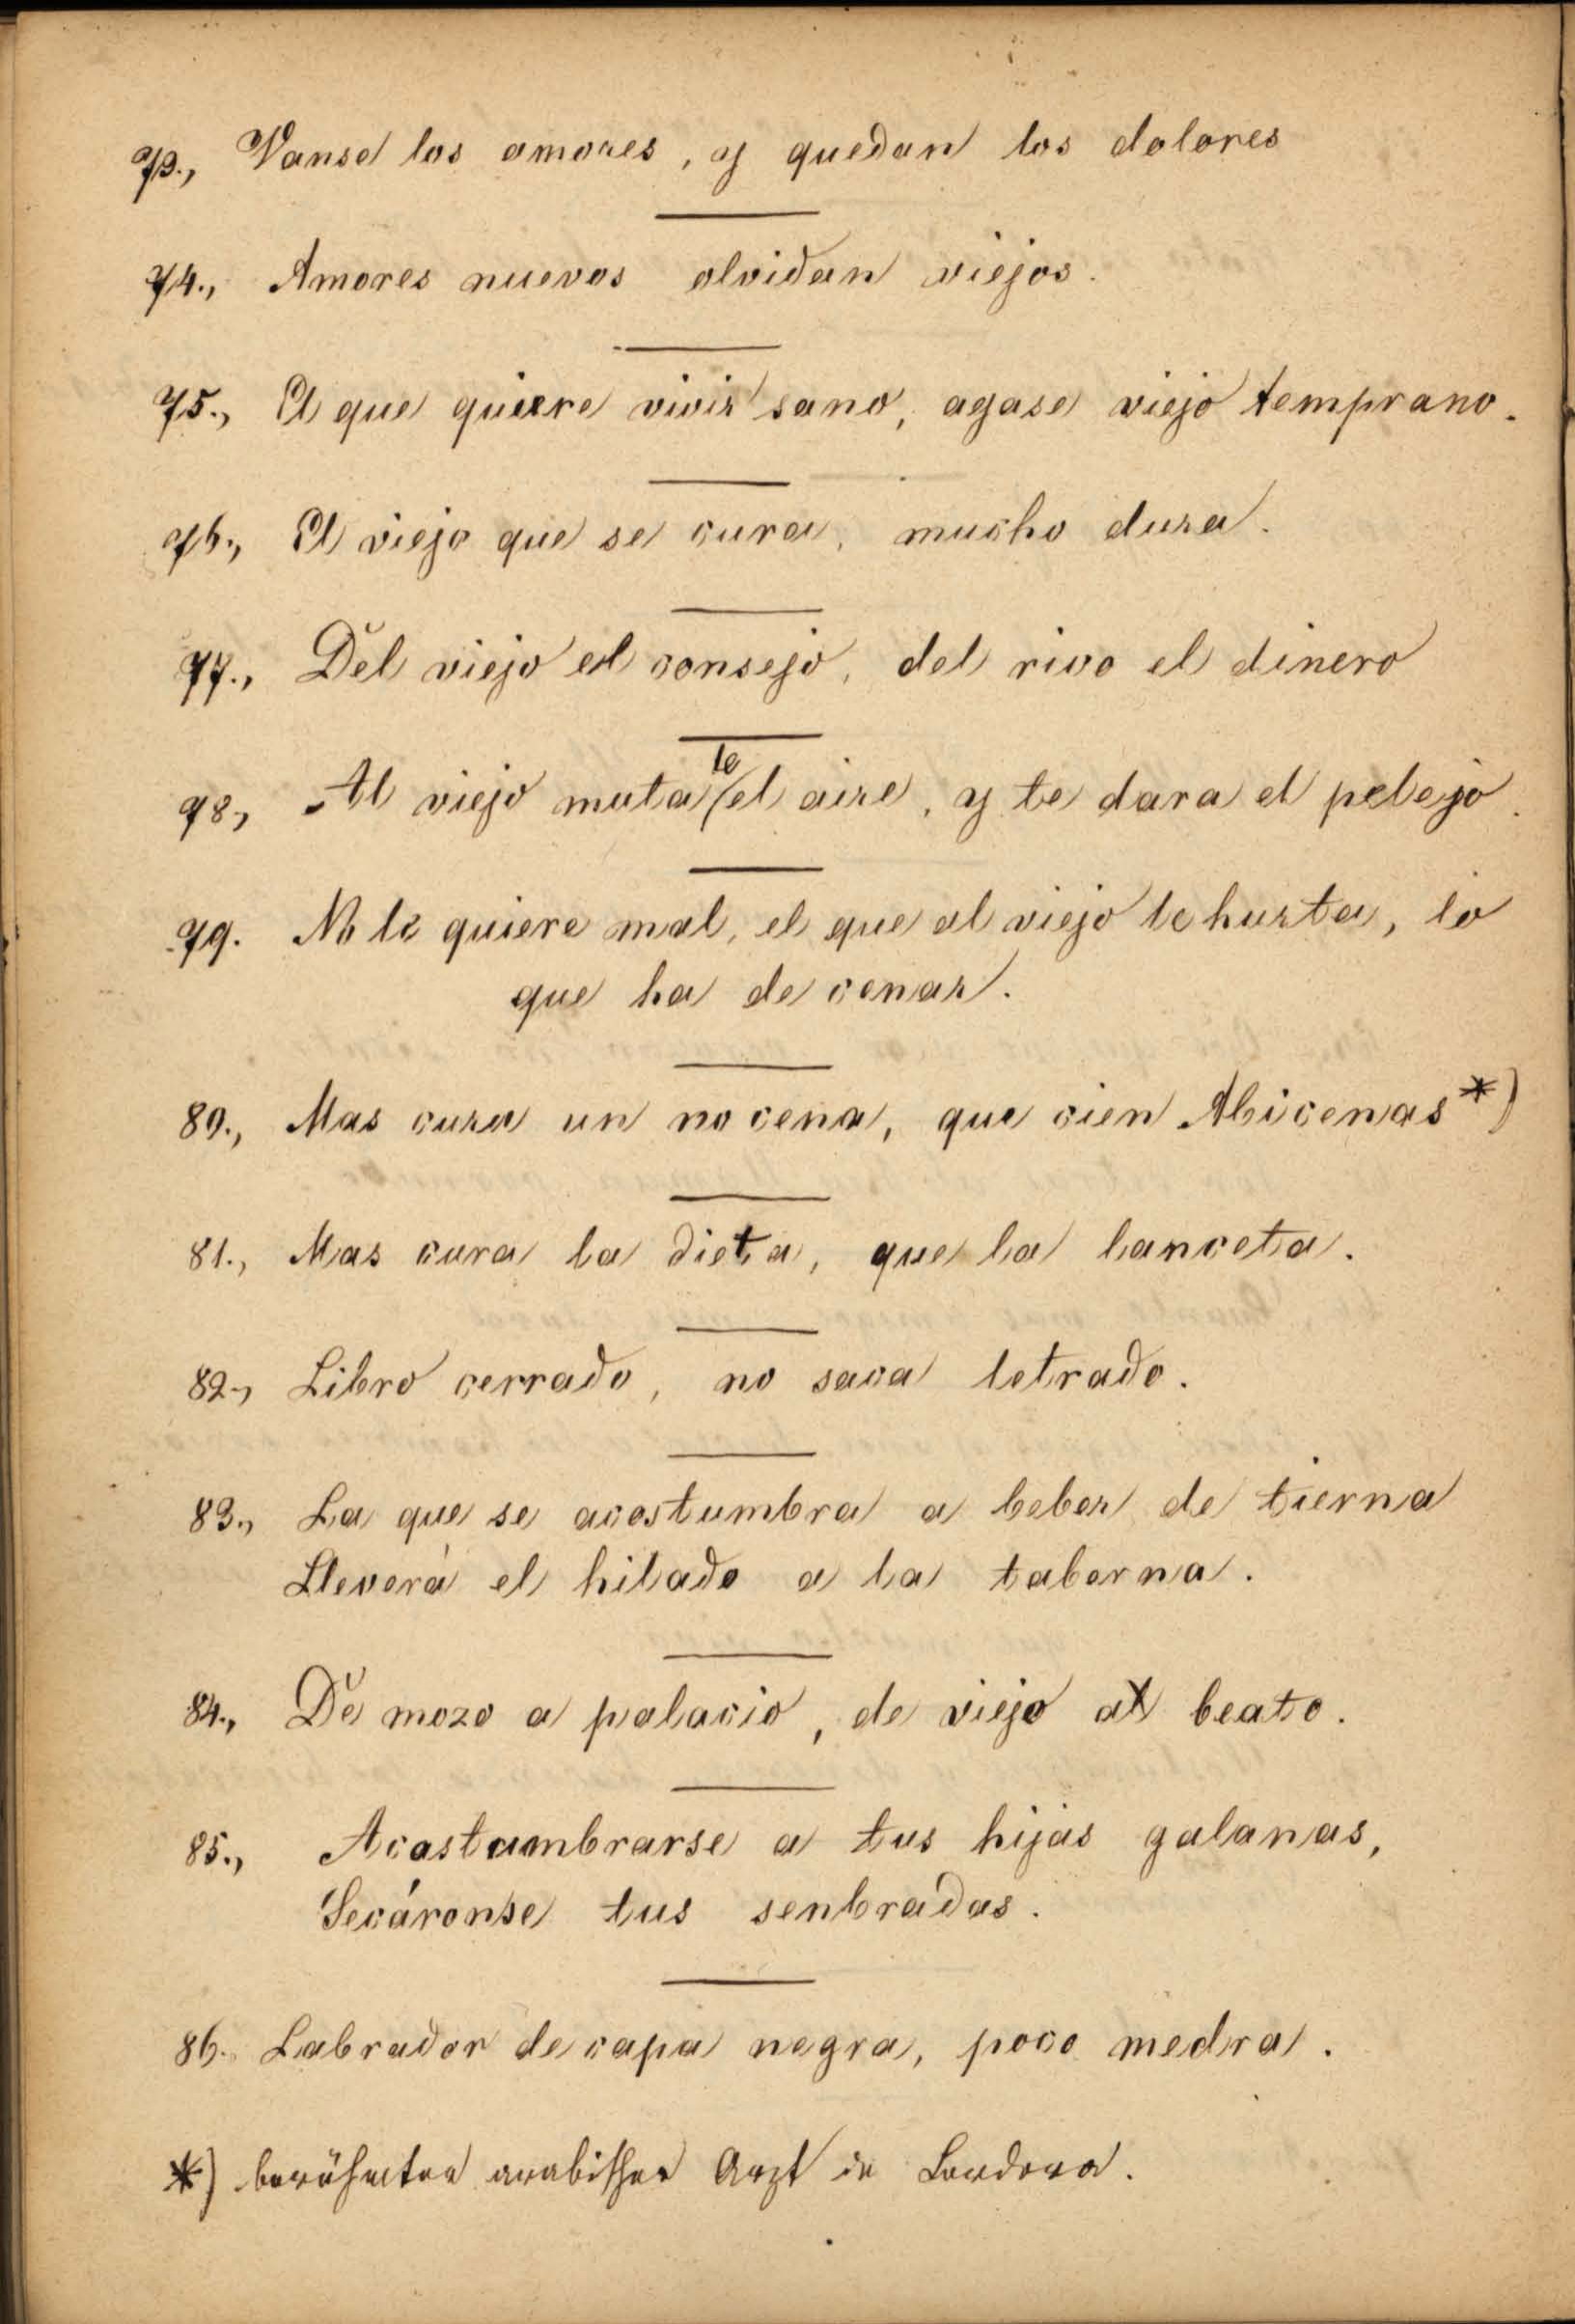 73., Vanse los amores, y quedan los dolores
74., Amores nuevos olvidan viejos.
75., El que quiere vivir sano, agase viejo temprano.
76., El viejo que se cura, mucho dura.
77., Del viejo el consejo, del rico el dinero
78., Al viejo muta le el aire, y te dara el pelejo.
79. No le quiere mal, el que al viejo le hurta, lo
que ha de cenar.
80., Mas cura un no cena, que cien Abicenas *)
81., Mas cura la dieta, que la lanceta.
82., Libro cerrado, no saca letrado.
83., La que se acostumbra a beber de tierna
Lleverá el hilado a la taberna.
84., De mozo a palacio, de viejo a beato.
85., Acostumbrarse a tus hijas galanas,
Secáronse tus senbradas.
86. Labrador de capa negra, poco medra.
*) berühmter arabischer Arzt in Cordova.